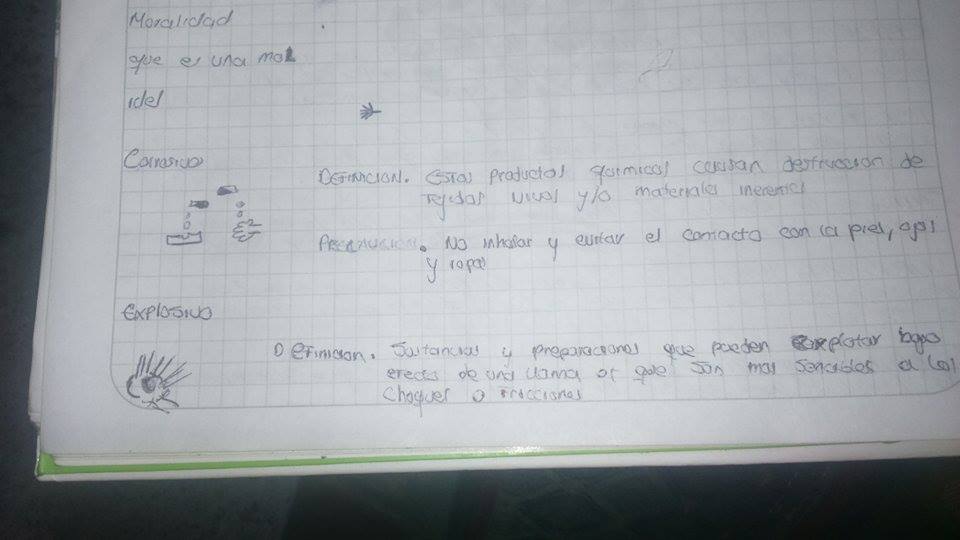 Moralidad
que es una mol
idel
Corrosivo
DEFINICION. Estos productos quimicos causan destruccion de
Tejidos vivos y/o materiales inertes
Precaucion. No inhalar y evitar el contacto con la piel, ojos
y ropas
EXPLOSIVO
Definicion. Sustancias y preparaciones que pueden explotar bajo
efecto de una llama o que son mas sencibles a los
Choques o Fricciones